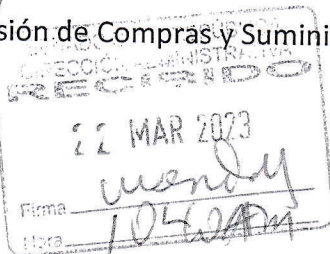 sión de Compras y Sumini
DIRECCIÓN ADMINISTRATIVA
RECIBIDO
22 MAR 2023
Firma wendy
Hora 10:40 AM